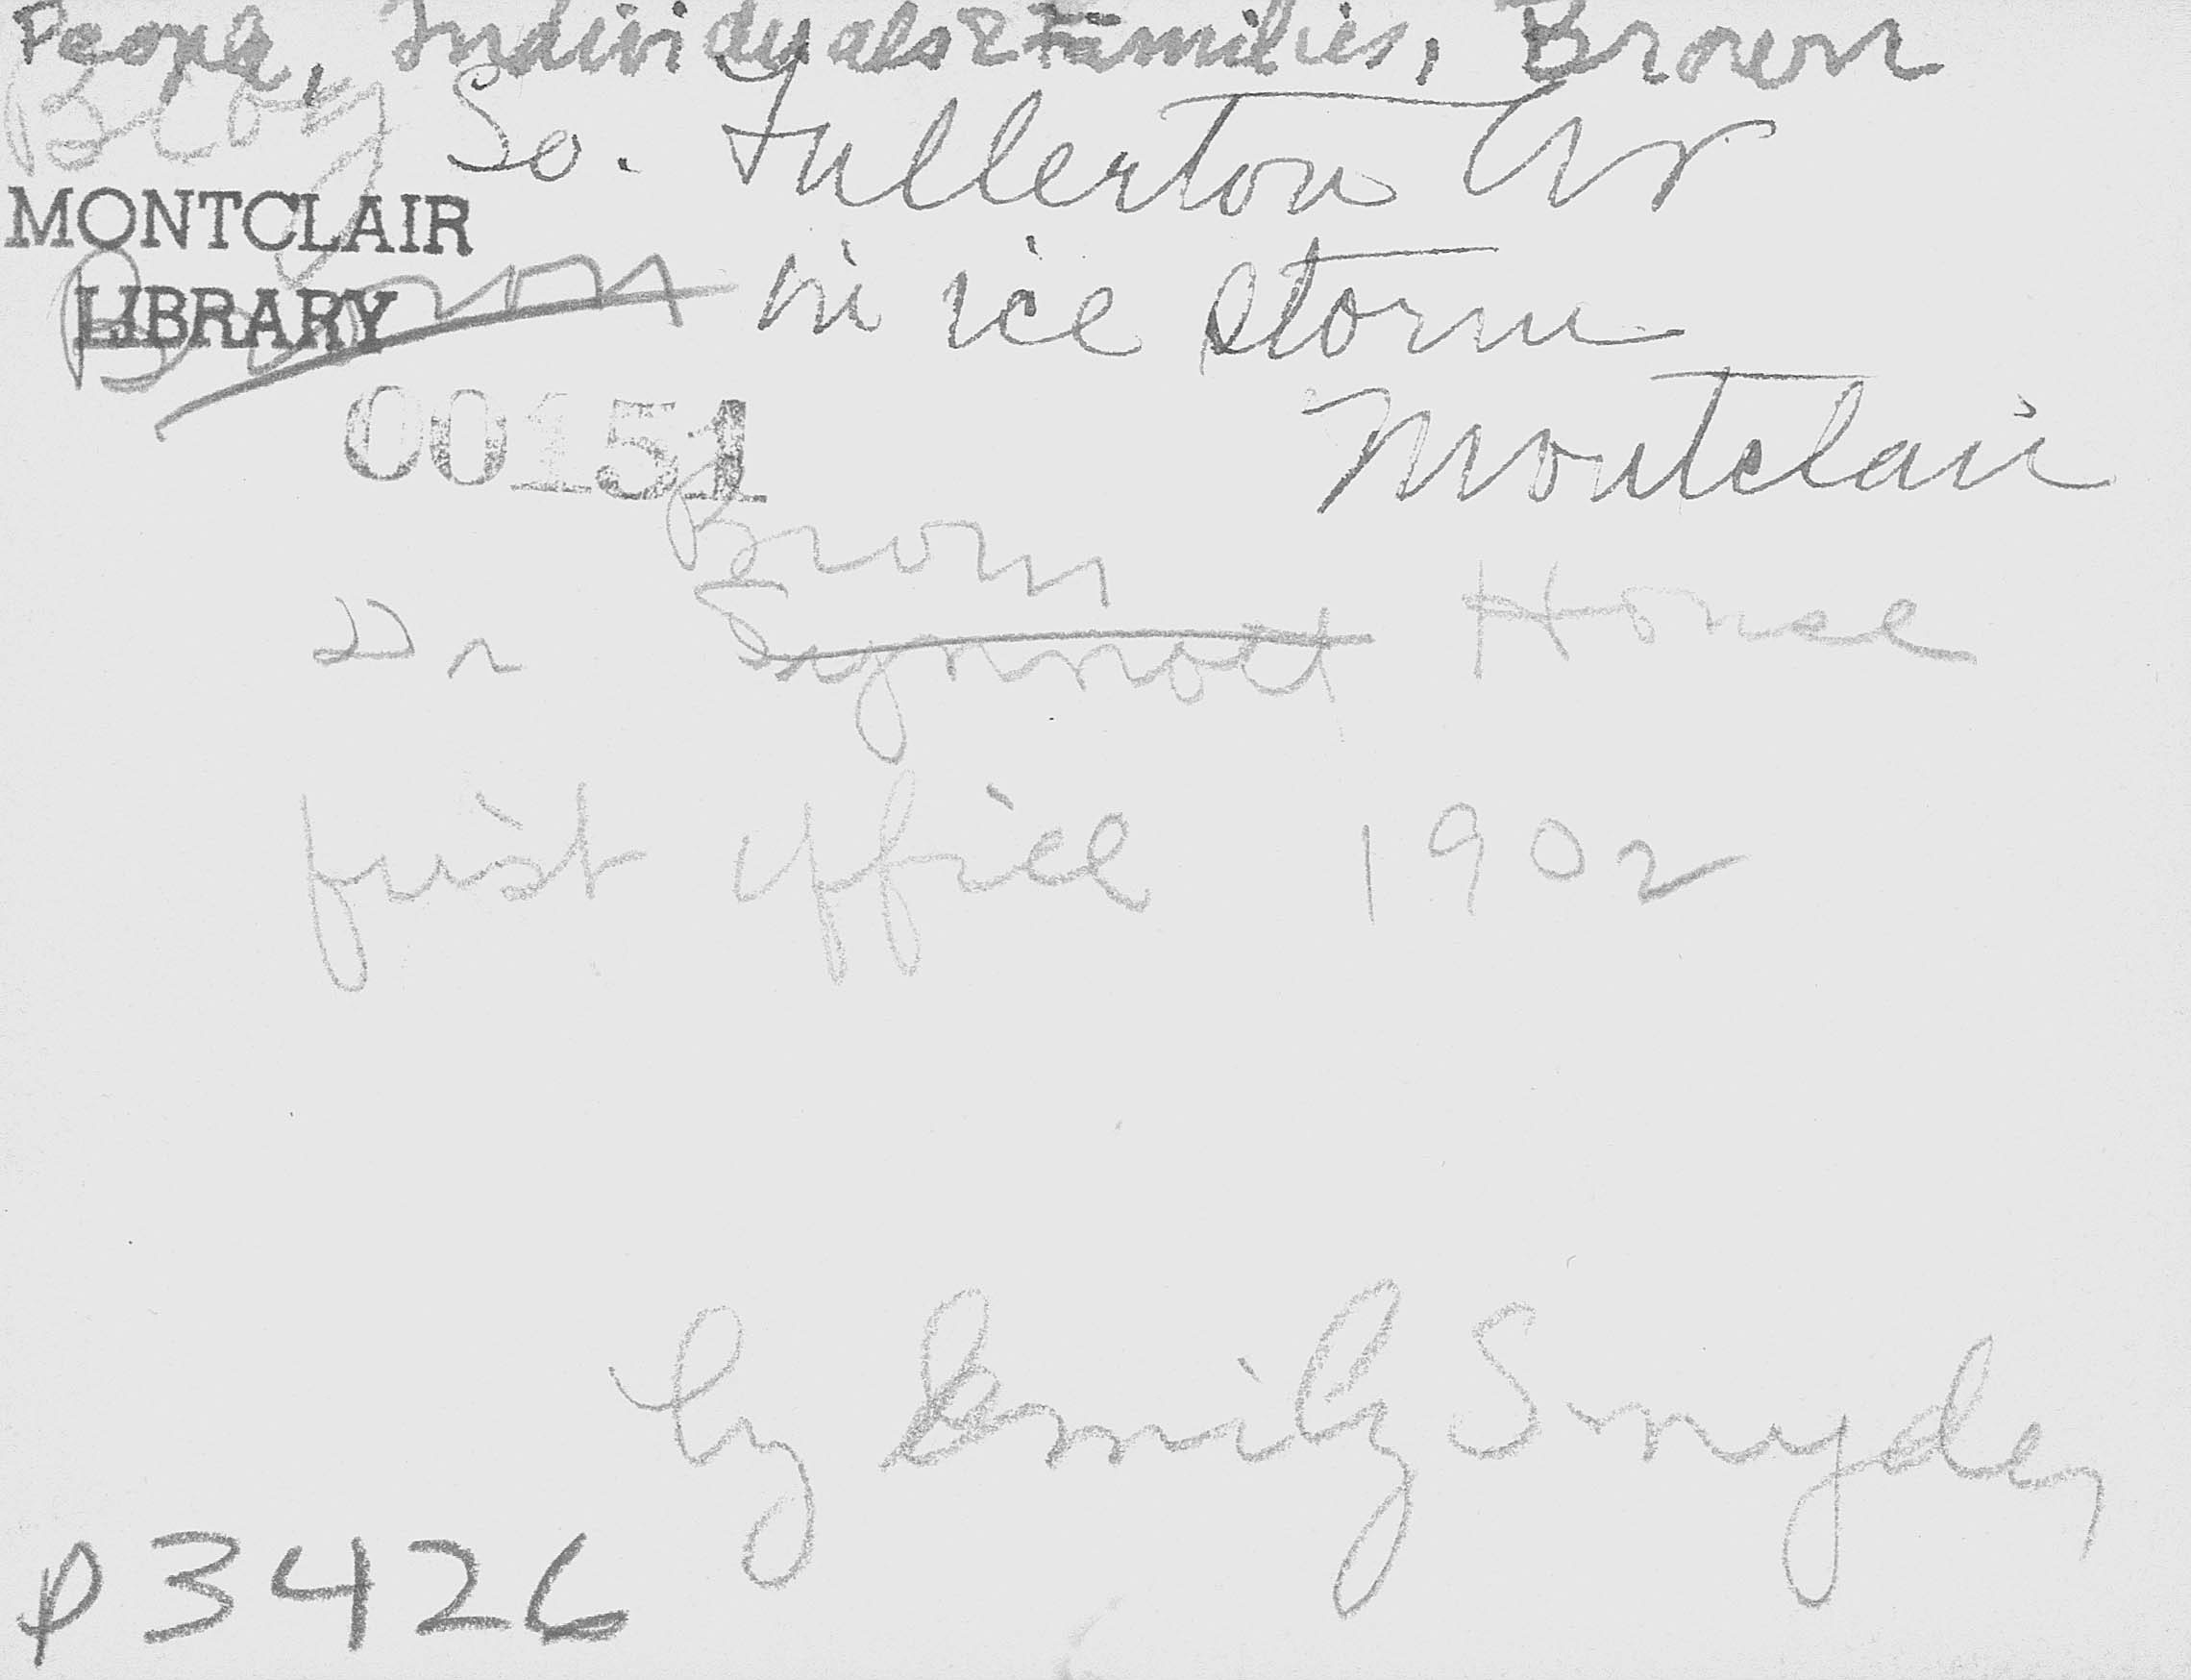 People, Individuals & Families, Brown
Biog
So. Fullerton Av
MONTCLAIR
LIBRARY
Brown
in ice storm
00151
Montclair
Brown
Dr Synnott House
first office 1902
by Emily Snyder
P3426